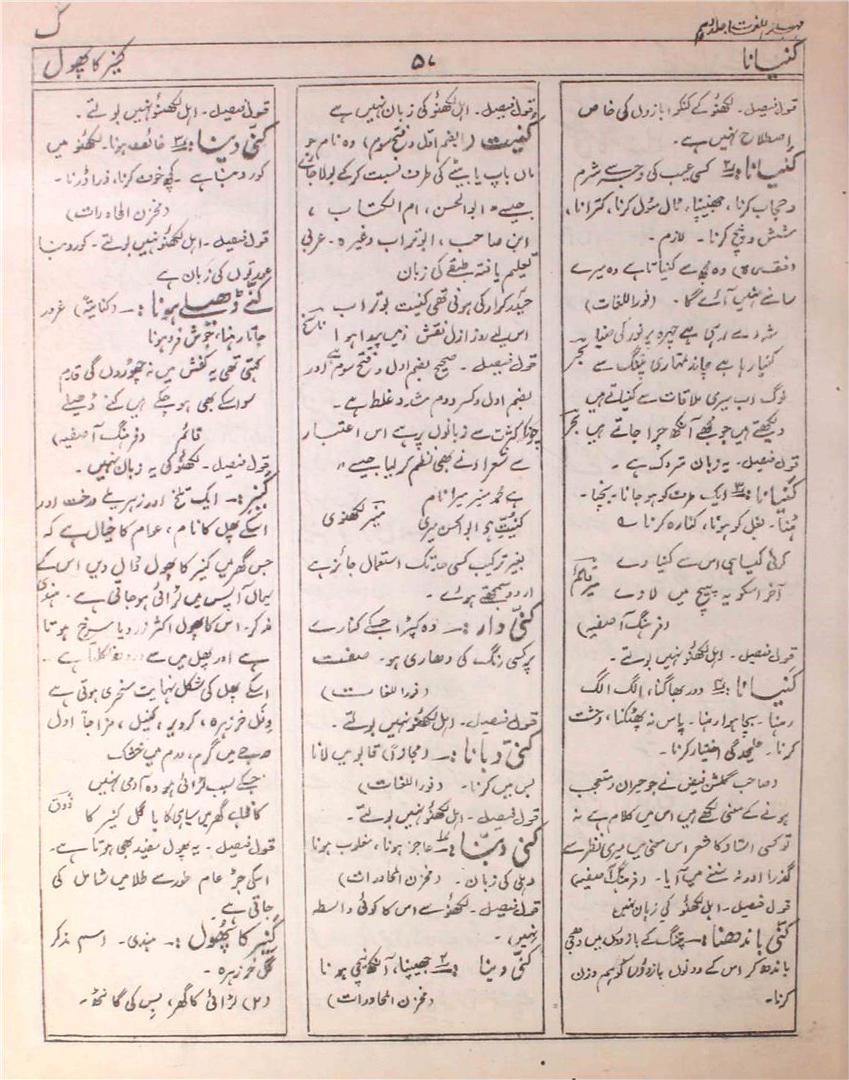 مہذب اللغات جلد دہم
گ
کنیانا
۵۷
کنیر کا پھول
قول فیصل۔ لکھنؤ کے کنکوا بازوں کی خاص
اصطلاح نہیں ہے۔
کنیانا :۔ ۲ کسی عیب کی وجہ سے شرم
و حجاب کرنا، جھنیپنا، ٹال مٹول کرنا، کترانا،
شش و پنج کرنا۔ لازم۔
(فقرہ) وہ مجھ سے کنیاتا ہے وہ میرے
سامنے نہیں آئے گا۔ (نور اللغات)
شہ دے رہی ہے چہرہ پر نور کی ضیا
کنیا رہا ہے چاند تمہاری پتنگ سے بحر
لوگ اب میری ملاقات سے کنیاتے ہیں
دیکھتے ہیں جو مجھے آنکھ چرا جاتے ہیں بحر
قول فیصل۔ یہ زبان متروک ہے۔
کنیانا :۔ ۳ ایک طرف کو ہو جانا۔ بچنا۔
ہٹنا۔ بغل کو ہونا، کنارہ کرنا ؎
کوئی کیسا ہی اس سے کنیا دے
آخر اسکو یہ پیچ میں لا دے
(فرہنگ آصفیہ)
قول فیصل۔ اہل لکھنؤ نہیں بولتے۔
کنیانا :۔ ۴ دور بھاگنا، الگ الگ
رہنا۔ بچا ہوا رہنا۔ پاس نہ پھٹکنا، وحشت
کرنا۔ علیحدگی اختیار کرنا۔
(صاحب گلشن فیض نے جو حیران و متعجب
ہونے کے معنی لکھے ہیں اس میں کلام ہے نہ
تو کسی استاد کا شعر اس معنی میں میری نظر سے
گذرا اور نہ سننے میں آیا۔ (فرہنگ آصفیہ)
قول فیصل۔ اہل لکھنؤ کی زبان نہیں
کنی باندھنا :۔ پتنگ کے بازو کی میں دھجی
باندھ کر اس کے دونوں بازوؤں کو ہم وزن
کرنا۔
قول فیصل۔ اہل لکھنؤ کی زبان نہیں ہے
کنیت (بضم اول و فتح سوم) وہ نام جو
ماں باپ یا بیٹے کی طرف نسبت کر کے بولا جائے
جیسے۔ ابوالحسن، ام الکتاب،
ابن صاحب، ابو تراب وغیرہ۔ عربی
تعلیم یافتہ طبقے کی زبان
حیدر کرار کی ہونی تھی کنیت بوتراب
اس لیے روز ازل نقش زمیں پیدا ہوا ناسخ
قول فیصل۔ صحیح بضم اول و فتح سوم ہے اور
بضم اول و کسر دوم مشدد غلط ہے۔
چونکہ کثرت سے زبانوں پر ہے اس اعتبار
سے شعراء نے بھی نظم کر لیا جیسے "
ہے محمد منیر میرا نام
کنیت ہے ابوالحسن میری منیر لکھنوی
بغیر ترکیب کسی حد تک استعمال جائز ہے
اردو سمجھتے ہوئے۔
کنی دار :۔ وہ کپڑا جسکے کنارے
پر کسی رنگ کی دھاری ہو۔ صفت
(نور اللغات)
قول فیصل۔ اہل لکھنؤ نہیں بولتے۔
کنی دبانا :۔ (مجازاً) قابو میں لانا
بس میں کرنا۔ (نور اللغات)
قول فیصل۔ اہل لکھنؤ نہیں بولتے۔
کنی دبنا :۔ ۱ عاجز ہونا، مغلوب ہونا
دہلی کی زبان۔ (مخزن المحاورات)
قول فیصل۔ لکھنؤ سے اس کا کوئی واسطہ
نہیں۔
کنی دبنا :۔ ۲ جھیپنا، آنکھ نیچی ہونا
(مخزن المحاورات)
قول فیصل۔ اہل لکھنؤ نہیں بولتے۔
کنی دبنا :۔ ۳ خائف ہونا۔ لکھنؤ میں
کور دبنا ہے۔ کچھ خوف کرنا، ذرا ڈرنا۔
(مخزن المحاورات)
قول فیصل۔ اہل لکھنؤ نہیں بولتے۔ کور دبنا
عورتوں کی زبان ہے
کنے ڈھیلے ہونا :۔ (کنایۃً) غرور
جاتا رہنا، جوش فرو ہونا
کہتی تھی یہ کفش میں نہ چھوڑوں گی قدم
سو اسکے بھی ہو چکے ہیں کنے ڈھیلے
قائم (فرہنگ آصفیہ)
قول فیصل۔ لکھنؤ کی یہ زبان نہیں۔
کنیر :۔ ایک تلخ اور زہریلے درخت اور
اسکے پھل کا نام، عوام کا خیال ہے کہ
جس گھر میں کنیر کا پھول ڈال دیں اس کے
یہاں آپس میں لڑائی ہو جاتی ہے۔ ہندی
مذکر۔ اس کا پھول اکثر زرد یا سرخ ہوتا
ہے اور پھل میں سے دودھ نکلتا ہے۔
اسکے پھل کی شکل نہایت سنحری ہوتی ہے
گل خرزہرہ، کرویر، کنیل، مزاجاً اول
درجے میں گرم، دوم میں خشک
جسکے سبب لڑائی ہو وہ آدمی نہیں
کانٹا ہے گھر میں سیاہی کا یا گل کنیر کا ذوق
قول فیصل۔ یہ پھول سفید بھی ہوتا ہے۔
اسکی جڑ عام طور سے طلا میں شامل کی
جاتی ہے۔
کنیر کا پھول :۔ ہندی۔ اسم مذکر
گل خرزہرہ۔
(۲) لڑائی کا گھر، بِس کی گانٹھ۔